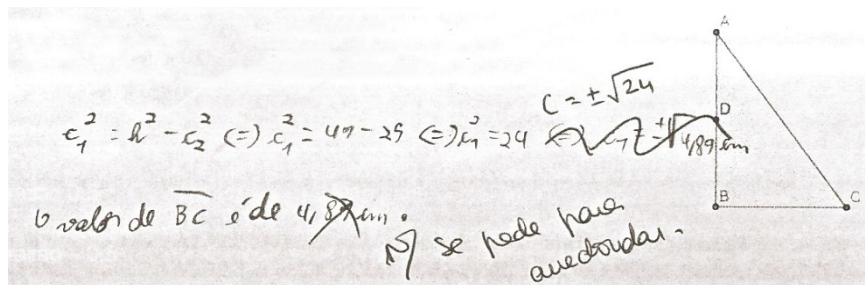 C = ±√24
c₁² = h² − c₂² (=) c₁² = 49 − 25 (=) c₁² = 24 (=) c₁ = ±√ 4,89 cm
O valor de BC é de 4,89 cm.
Ñ se pede para
arredondar.
A
D
B
C